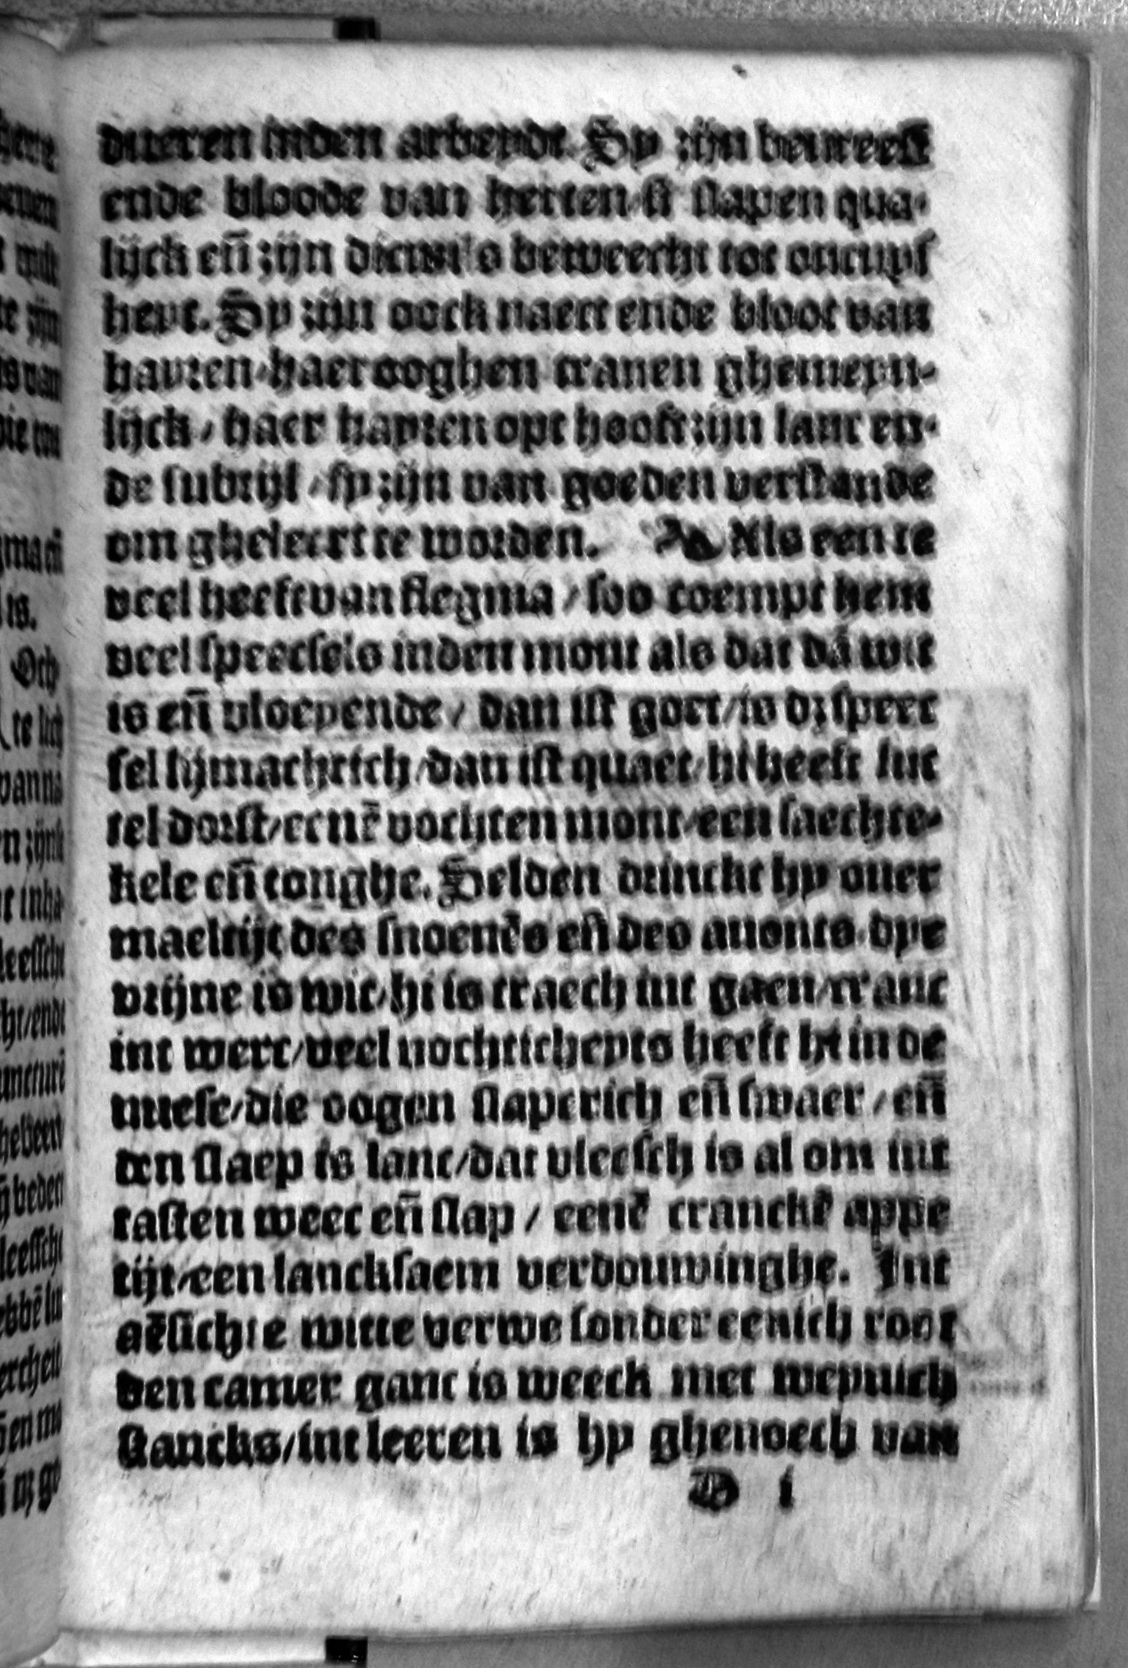 dueren inden arbeydt. Sy zijn bevreest
ende bloode van herten/si slapen qua-
lijck eñ zijn dicwils beweecht tot oncuys
heyt. Sy zijn oock naect ende bloot van
hayren/haer ooghen tranen ghemeyn-
lijck/haer hayren opt hooft zijn lanc en-
de subtijl/sy zijn van goeden verstande
om gheleert te worden. Als een te
veel heeft van flegma/soo coempt hem
veel speecsels inden mont als dat dā wit
is eñ vloeyende/dan ist goet/is dz speec
sel lijmachtich/dan ist quaet/hi heeft lut
tel dorst/eenē vochten mont/een saechte-
kele eñ tonghe. Selden drinckt hy ouer
maeltijt des snoenēs eñ des auonts. dye
vrijne is wit/hi is traech int gaen/cranc
int werc/veel vochticheyts heeft hi in de
nuese/die oogen slaperich eñ swaer/eñ
den slaep is lanc/dat vleesch is al om int
tasten weec eñ slap/eenē cranckē appe
tijt/een lancksaem verdouwinghe. Int
aēsichte witte verwe sonder eenich root
den camer ganc is weeck met weynich
stancks/int leeren is hy ghenoech van
D i